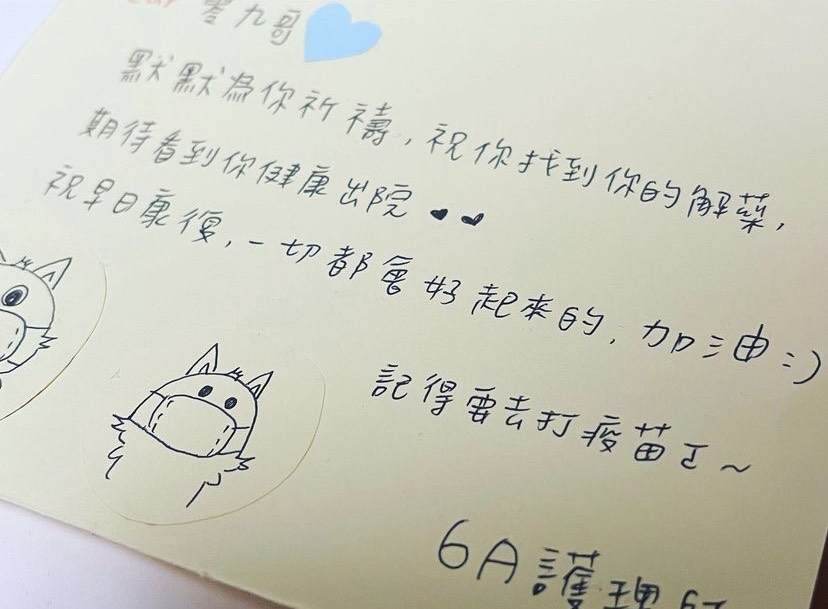 零九哥
默默為你祈禱，祝你找到你的解藥，
期待看到你健康出院♥♥
祝早日康復，一切都會好起來的，加油:)
記得要去打疫苗ㄛ～
6A護理